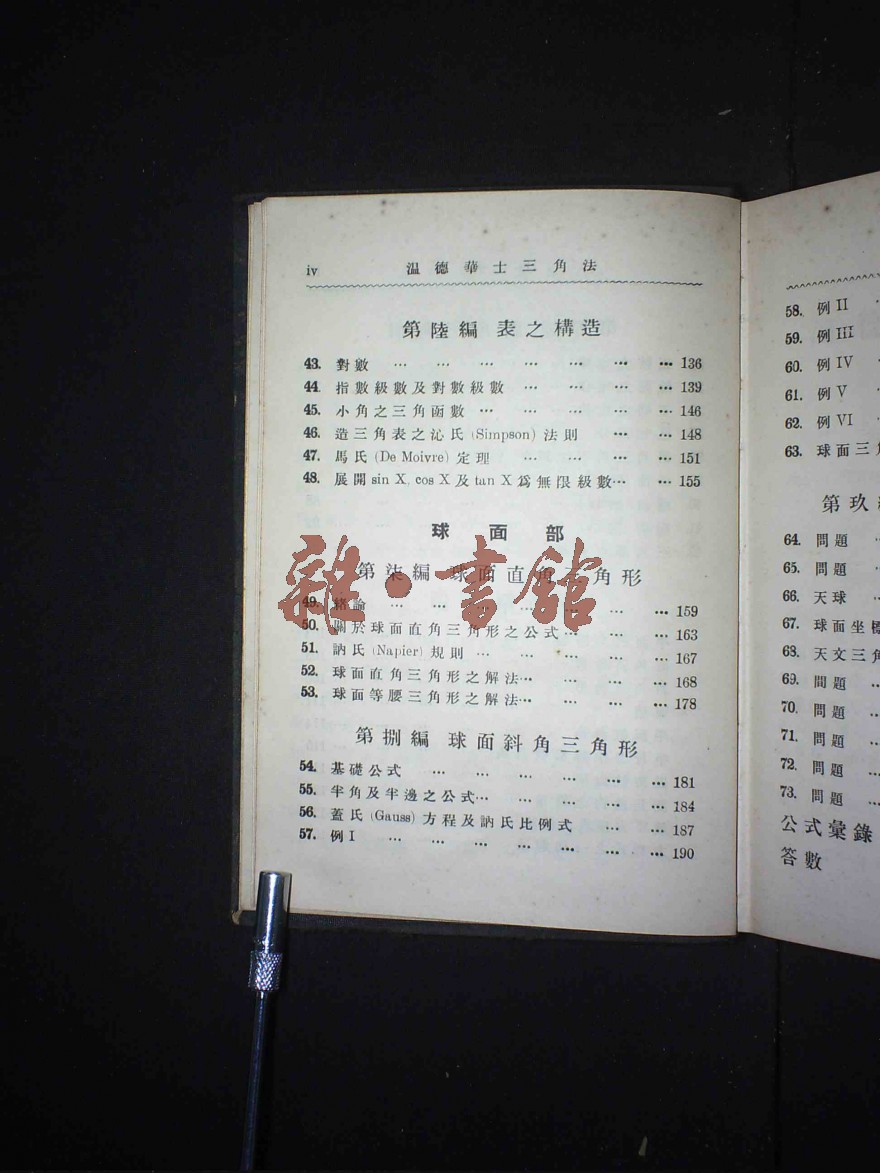 iv 温德華士三角法
第陸編 表之構造
43. 對數 … … … … … … 136
44. 指數級數及對數級數 … … … … 139
45. 小角之三角函數 … … … … … 146
46. 造三角表之沁氏 (Simpson) 法則 … … 148
47. 馬氏 (De Moivre) 定理 … … … … 151
48. 展開 sin X, cos X 及 tan X 爲無限級數 … … 155
球面部
第柒編 球面直角三角形
49. 緒論 … … … … … … … 159
50. 關於球面直角三角形之公式 … … … 163
51. 訥氏 (Napier) 規則 … … … … … 167
52. 球面直角三角形之解法 … … … … 168
53. 球面等腰三角形之解法 … … … … 178
第捌編 球面斜角三角形
54. 基礎公式 … … … … … … 181
55. 半角及半邊之公式 … … … … … 184
56. 蓋氏 (Gauss) 方程及訥氏比例式 … … 187
57. 例 I … … … … … … … 190
雜·書館
58. 例 II …
59. 例 III
60. 例 IV
61. 例 V
62. 例 VI
63. 球面三角
第玖
64. 問題 …
65. 問題 …
66. 天球 …
67. 球面坐標
68. 天文三角
69. 問題 …
70. 問題 …
71. 問題 …
72. 問題 …
73. 問題 …
公式彙錄
答數